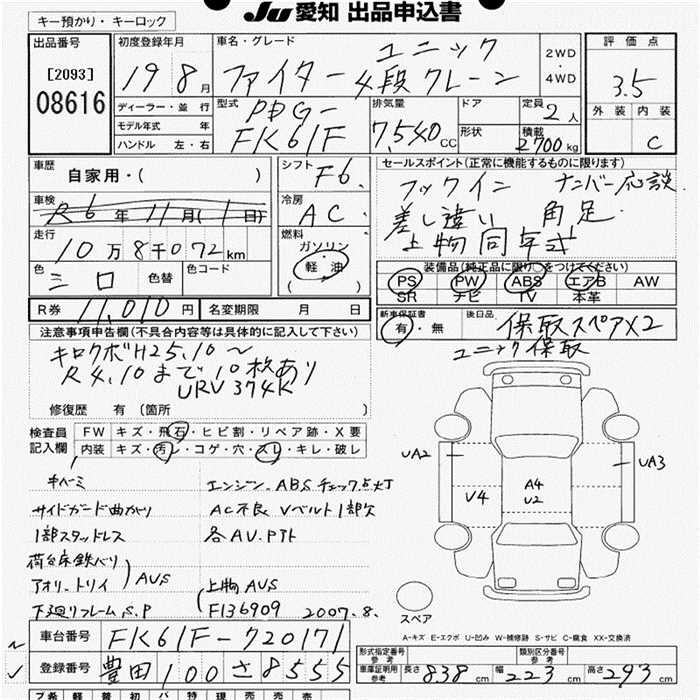 キー預かり・キーロック
JU愛知 出品申込書
出品番号
[2093]
08616
初度登録年月
19 8月
車名・グレード
ユニック
ファイター 4段クレーン
2WD
・
4WD
評価点
3.5
外装 内装
C
ディーラー・並行
モデル年式 年
ハンドル 左・右
型式
PDG-
FK61F
排気量
7,540 CC
ドア
形状
定員
2人
積載
2700 kg
車歴
自家用・( )
シフト
F6
セールスポイント(正常に機能するものに限ります)
フックイン ナンバー応談
差し違い 角足
上物同年式
車検
R6年11月(1日)
冷房
AC
走行
10万8千072km
燃料
ガソリン
軽油
( )
色
シロ
色替
色コード
装備品(純正品に限り○をつけてください)
PS PW ABS エアB AW
SR ナビ TV 本革
R券 11,010円
名変期限 月 日
新車保証書
有・無
後日品
保取スペア×2
ユニック保取
注意事項申告欄(不具合内容等は具体的に記入して下さい)
キロクボH25.10～
R4.10まで10枚あり
URV374K
修復歴 有 〔箇所 〕
検査員
記入欄
FW キズ・飛石・ヒビ割・リペア跡・X要
内装 キズ・汚レ・コゲ・穴・スレ・キレ・破レ
エンジン、ABSチェック点灯
サイドガード曲がり
AC不良 Vベルト1部欠
1部スタッドレス
各AU.PTト
荷台床鉄バリ
アオリ、トリイ AUS
上物AUS
下廻りフレームS.P
F136909 2007.8.
UA2
UA3
U4
A4
U2
スペア
A-キズ E-エクボ U-凹み W-補修跡 S-サビ C-腐食 XX-交換済
車台番号
FK61F-720171
登録番号
豊田100さ8555
型式指定番号
参考
類別区分番号
参考
車庫証明用
参考
長さ 838cm 幅 223cm 高さ 293cm